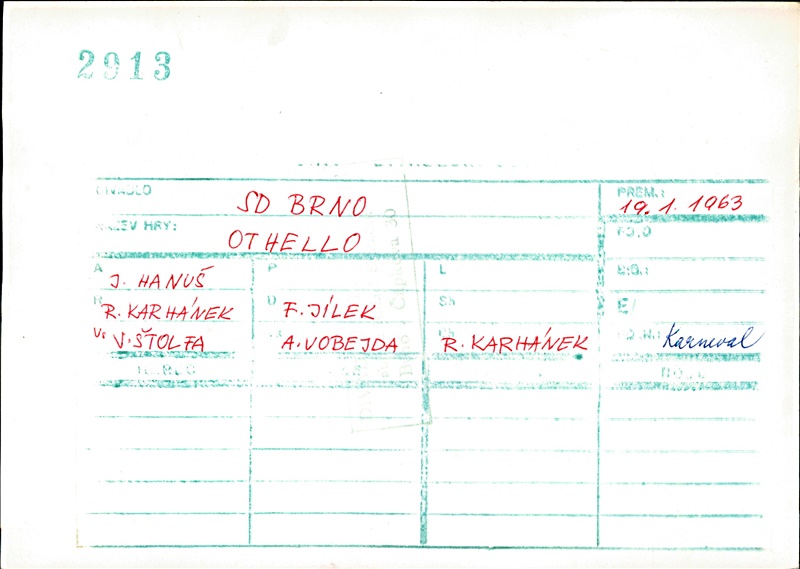 2913
DIVADLO SD BRNO PREM.: 19. 1. 1963
NÁZEV HRY: OTHELLO FOTO
A J. HANUŠ P L SIG.:
R R. KARHÁNEK D F. JÍLEK Sh
V. ŠTOLFA A. VOBEJDA Ch R. KARHÁNEK Karneval